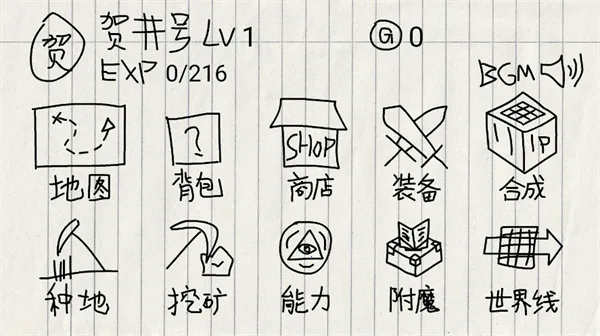 贺 贺井号 LV1 G 0
EXP 0/216
BGM
?
SHOP
地图 背包 商店 装备 合成
种地 挖矿 能力 附魔 世界线